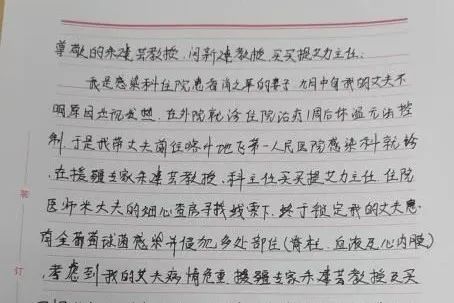 尊敬的朱建芸教授、闫新建教授、买买提艾力主任:
我是感染科住院患者肖之军的妻子，九月中旬我的丈夫不
明原因出现发热，在外院就诊住院治疗1周后体温无法控
制，于是我带丈夫前往喀什地区第一人民医院感染科就诊，
在援疆专家朱建芸教授、科主任买买提艾力主任、住院
医师米大夫的细心查房寻找线索下，终于确定我的丈夫患
有金葡萄球菌感染并侵犯多处部位(脊柱、血液及心内膜)
，考虑到我的丈夫病情危重，援疆专家朱建芸教授及买
装
订